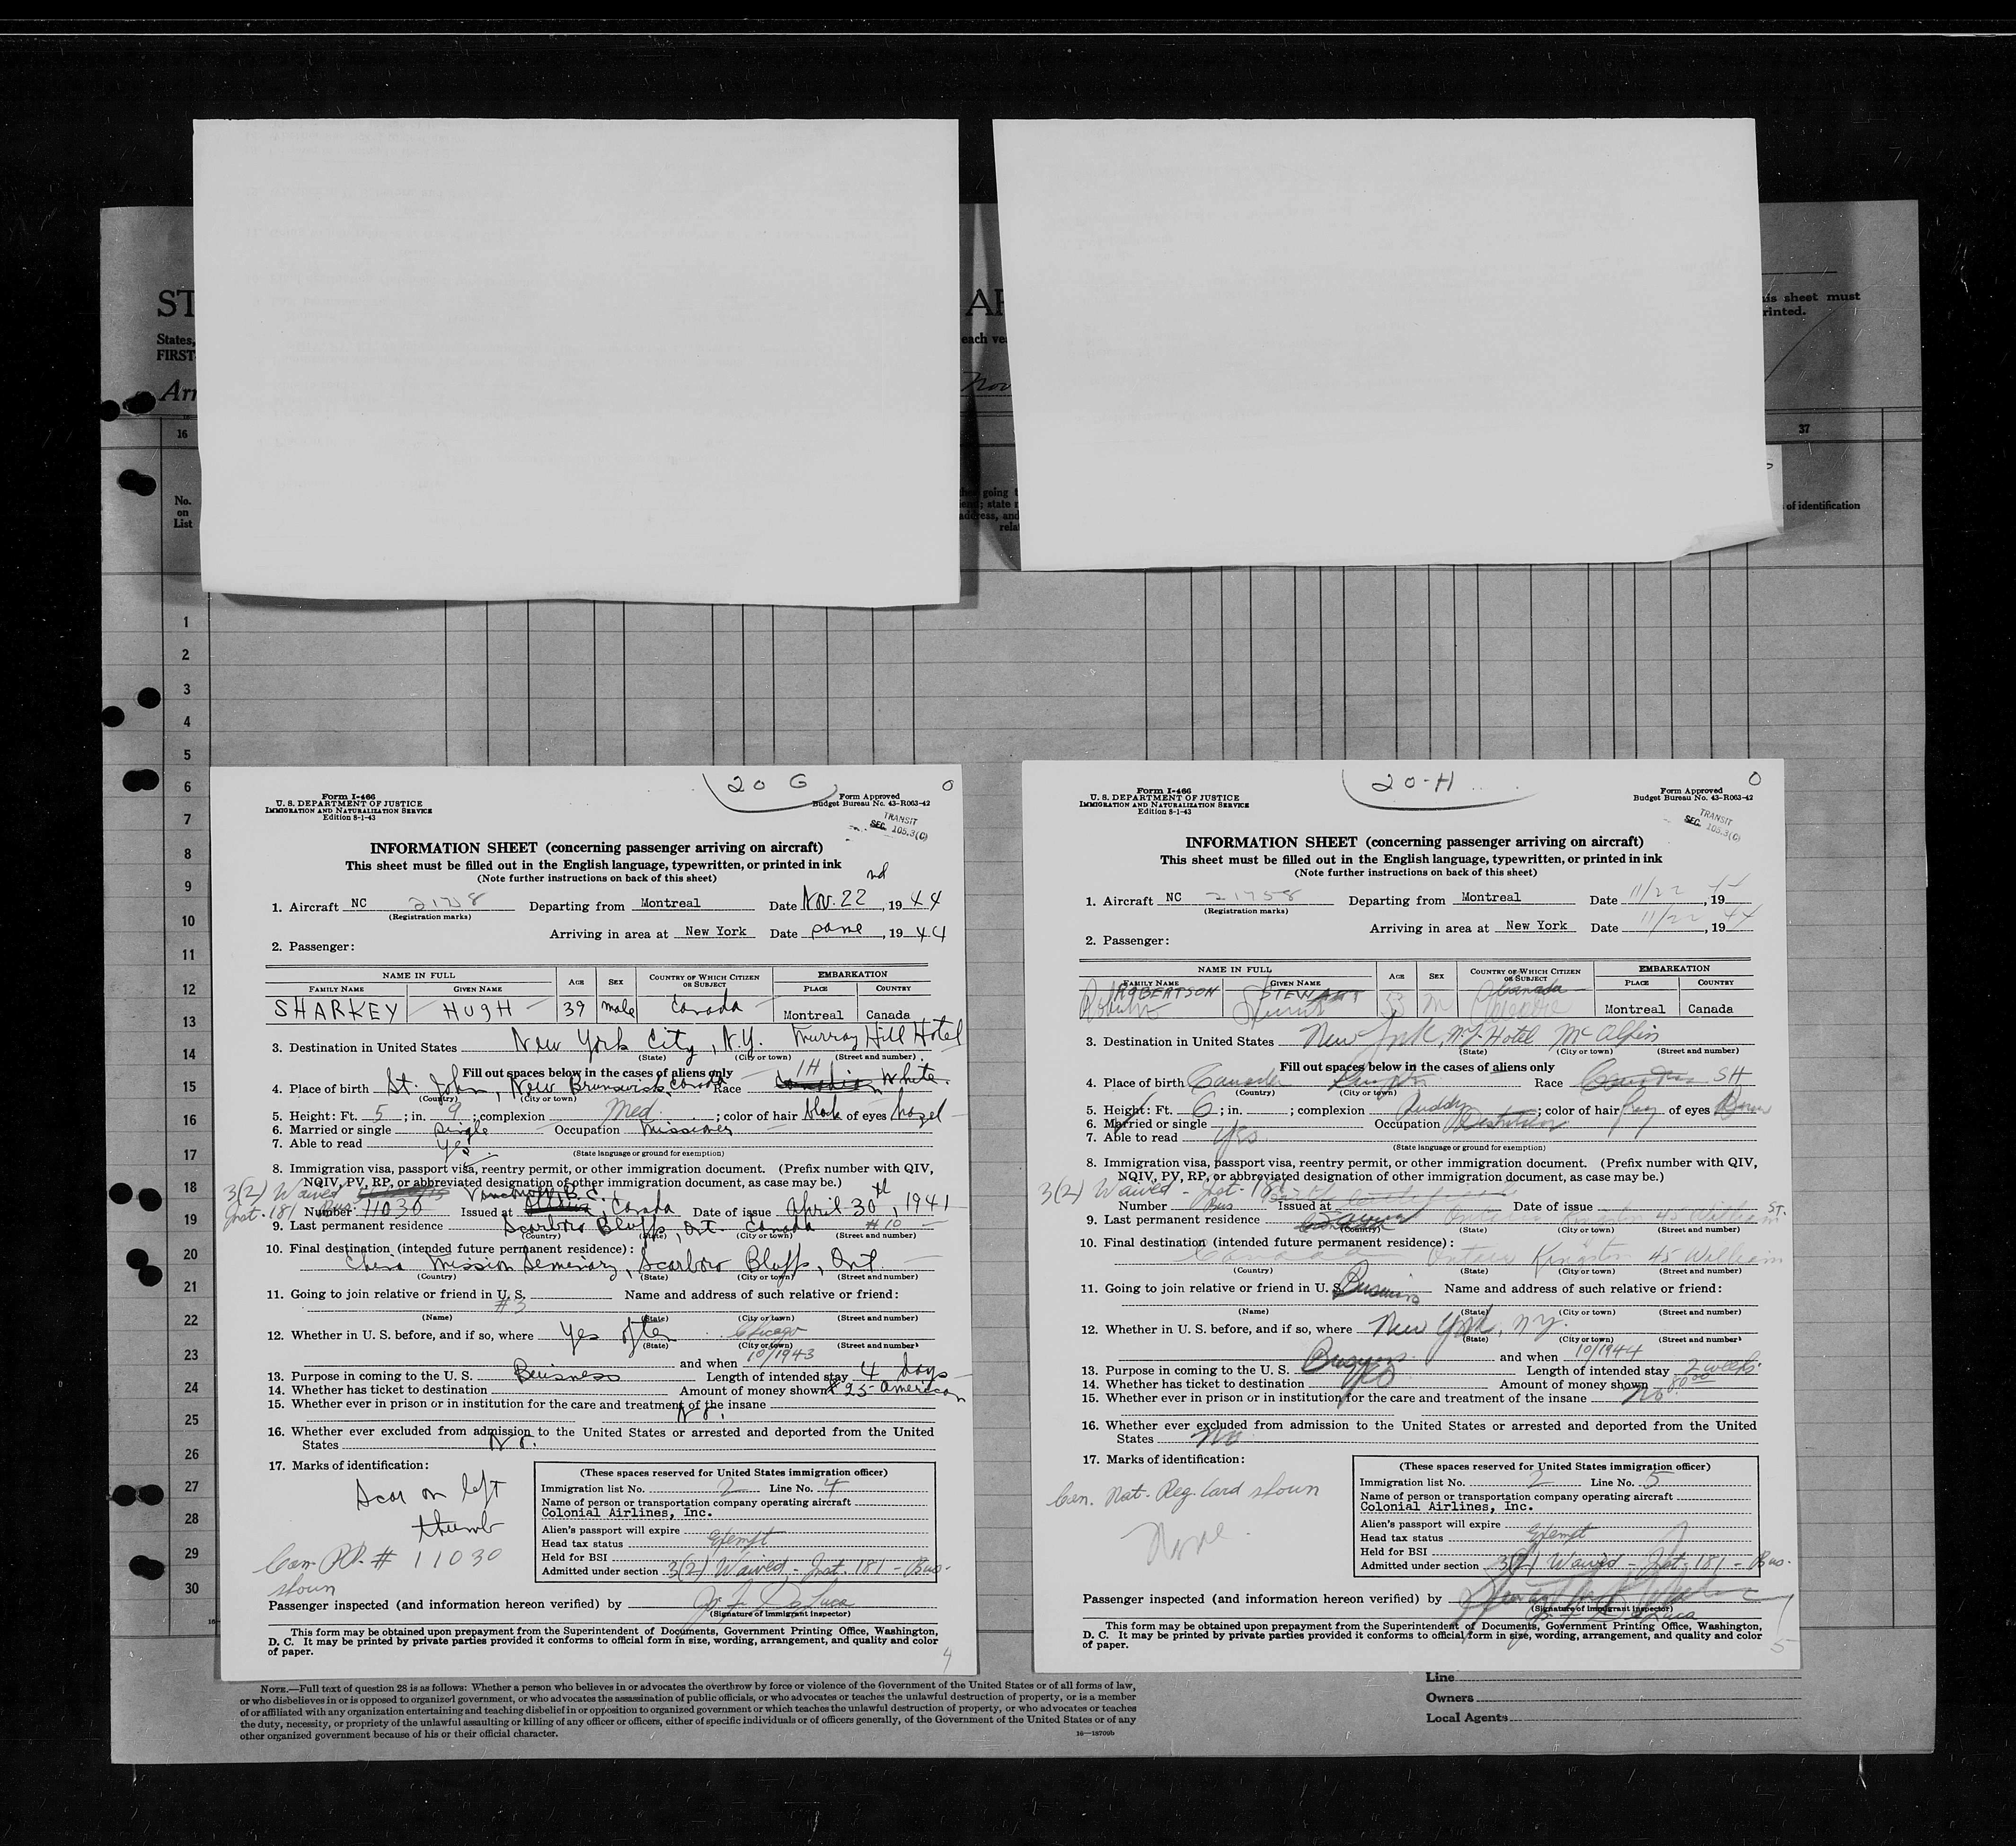 ST
AR
his sheet must
printed.
States,
each
FIRST
Arr
Nov
16
37
No.
on
List
going
state
address, and
of identification
1
2
3
4
5
6
7
8
9
10
11
12
13
14
15
16
17
18
19
20
21
22
23
24
25
26
27
28
29
30
20 G
O
Form I-466
U. S. DEPARTMENT OF JUSTICE
IMMIGRATION AND NATURALIZATION SERVICE
Edition 8-1-43
Form Approved
Budget Bureau No. 43-R063-42
TRANSIT
SEC. 105.3(C)
INFORMATION SHEET (concerning passenger arriving on aircraft)
This sheet must be filled out in the English language, typewritten, or printed in ink
(Note further instructions on back of this sheet)
1. Aircraft NC 21758 Departing from Montreal Date Nov. 22nd, 1944
(Registration marks)
Arriving in area at New York Date same, 1944
2. Passenger:
NAME IN FULL AGE SEX COUNTRY OF WHICH CITIZEN OR SUBJECT EMBARKATION
FAMILY NAME GIVEN NAME PLACE COUNTRY
SHARKEY HUGH 39 male Canada Montreal Canada
3. Destination in United States New York City, N.Y. Murray Hill Hotel
(State) (City or town) (Street and number)
Fill out spaces below in the cases of aliens only
4. Place of birth St. John, New Brunswick, Canada Race Canadian White IH
(Country) (City or town)
5. Height: Ft. 5; in. 9; complexion Med.; color of hair black of eyes hazel
6. Married or single single Occupation
7. Able to read Yes
(State language or ground for exemption)
8. Immigration visa, passport visa, reentry permit, or other immigration document. (Prefix number with QIV,
NQIV, PV, RP, or abbreviated designation of other immigration document, as case may be.)
3(2) Waived Vancouver B.C.
Inst. 181 Bus. Number 11030 Issued at Ottawa, Canada Date of issue April 30th, 1941
9. Last permanent residence Scarboro Bluffs, Ont. Canada #10
(Country) (State) (City or town) (Street and number)
10. Final destination (intended future permanent residence):
China Mission Seminary, Scarboro Bluffs, Ont.
(Country) (State) (City or town) (Street and number)
11. Going to join relative or friend in U. S. Name and address of such relative or friend:
#3
(Name) (State) (City or town) (Street and number)
12. Whether in U. S. before, and if so, where Yes often Chicago
(State) (City or town) (Street and number)
and when 10/1943
13. Purpose in coming to the U. S. Buisness Length of intended stay 4 days
14. Whether has ticket to destination Amount of money shown $25 American
15. Whether ever in prison or in institution for the care and treatment of the insane No.
16. Whether ever excluded from admission to the United States or arrested and deported from the United
States No.
17. Marks of identification:
Scar on left
thumb
Can. PP. # 11030
shown
(These spaces reserved for United States immigration officer)
Immigration list No. 2 Line No. 4
Name of person or transportation company operating aircraft
Colonial Airlines, Inc.
Alien's passport will expire
Head tax status Exempt
Held for BSI
Admitted under section 3(2) Waived - Inst. 181 - Bus.
Passenger inspected (and information hereon verified) by
(Signature of immigrant inspector)
This form may be obtained upon prepayment from the Superintendent of Documents, Government Printing Office, Washington,
D. C. It may be printed by private parties provided it conforms to official form in size, wording, arrangement, and quality and color
of paper.
4
20-H
O
Form I-466
U. S. DEPARTMENT OF JUSTICE
IMMIGRATION AND NATURALIZATION SERVICE
Edition 8-1-43
Form Approved
Budget Bureau No. 43-R063-42
TRANSIT
SEC. 105.3(C)
INFORMATION SHEET (concerning passenger arriving on aircraft)
This sheet must be filled out in the English language, typewritten, or printed in ink
(Note further instructions on back of this sheet)
1. Aircraft NC 21758 Departing from Montreal Date 11/22, 1944
(Registration marks)
Arriving in area at New York Date 11/22, 1944
2. Passenger:
NAME IN FULL AGE SEX COUNTRY OF WHICH CITIZEN OR SUBJECT EMBARKATION
FAMILY NAME GIVEN NAME PLACE COUNTRY
ROBERTSON STEWART M Canada Montreal Canada
3. Destination in United States New York, N.Y. Hotel McAlpin
(State) (City or town) (Street and number)
Fill out spaces below in the cases of aliens only
4. Place of birth Canada Kingston Race SH
(Country) (City or town)
5. Height: Ft. 6; in. ; complexion Ruddy; color of hair Gray of eyes Brown
6. Married or single Occupation
7. Able to read Yes
(State language or ground for exemption)
8. Immigration visa, passport visa, reentry permit, or other immigration document. (Prefix number with QIV,
NQIV, PV, RP, or abbreviated designation of other immigration document, as case may be.)
3(2) Waived - Inst. 181
Number Bus Issued at Date of issue
9. Last permanent residence Canada Ontario Kingston 45 William St.
(Country) (State) (City or town) (Street and number)
10. Final destination (intended future permanent residence):
Canada Ontario Kingston 45 William
(Country) (State) (City or town) (Street and number)
11. Going to join relative or friend in U. S. Business Name and address of such relative or friend:
(Name) (State) (City or town) (Street and number)
12. Whether in U. S. before, and if so, where New York, N.Y.
(State) (City or town) (Street and number)
and when 10/1944
13. Purpose in coming to the U. S. Business Length of intended stay 2 weeks
14. Whether has ticket to destination Yes Amount of money shown 80.00
15. Whether ever in prison or in institution for the care and treatment of the insane No
16. Whether ever excluded from admission to the United States or arrested and deported from the United
States No
17. Marks of identification:
Can. Nat. Reg. Card shown
None.
(These spaces reserved for United States immigration officer)
Immigration list No. 2 Line No. 5
Name of person or transportation company operating aircraft
Colonial Airlines, Inc.
Alien's passport will expire
Head tax status Exempt
Held for BSI
Admitted under section 3(2) Waived - Inst. 181 - Bus.
Passenger inspected (and information hereon verified) by
(Signature of immigrant inspector)
This form may be obtained upon prepayment from the Superintendent of Documents, Government Printing Office, Washington,
D. C. It may be printed by private parties provided it conforms to official form in size, wording, arrangement, and quality and color
of paper.
5
NOTE.—Full text of question 28 is as follows: Whether a person who believes in or advocates the overthrow by force or violence of the Government of the United States or of all forms of law,
or who disbelieves in or is opposed to organized government, or who advocates the assassination of public officials, or who advocates or teaches the unlawful destruction of property, or is a member
of or affiliated with any organization entertaining and teaching disbelief in or opposition to organized government or which teaches the unlawful destruction of property, or who advocates or teaches
the duty, necessity, or propriety of the unlawful assaulting or killing of any officer or officers, either of specific individuals or of officers generally, of the Government of the United States or of any
other organized government because of his or their official character.
16—18709b
Line
Owners
Local Agents